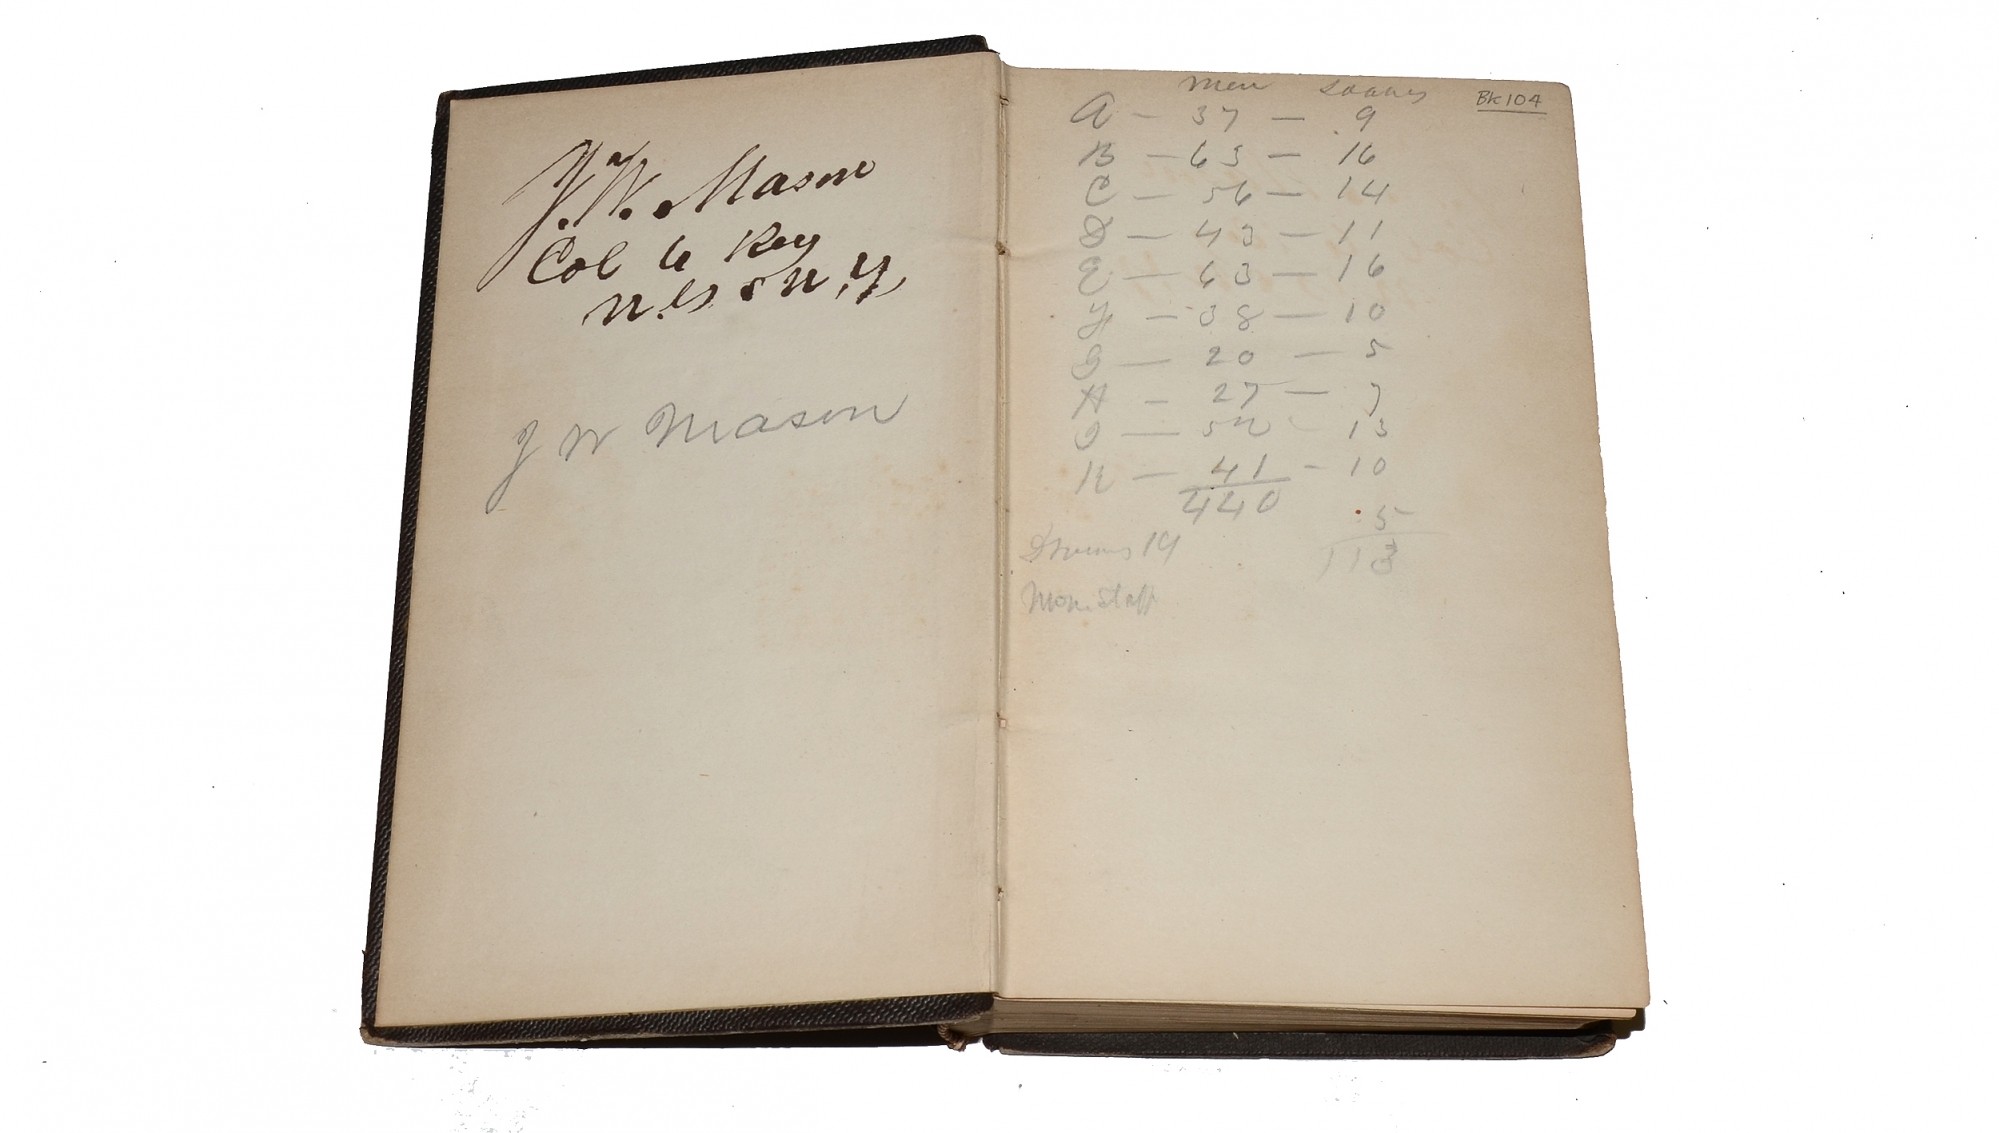 J. W. Mason
Col 6 Reg
N.G.S.N.Y,
J W Mason
Bk 104
men Loaves
A — 37 — 9
B — 63 — 16
C — 56 — 14
D — 43 — 11
E — 63 — 16
F — 38 — 10
G — 20 — 5
H — 27 — 7
I — 52 — 13
K — 41 — 10
440 5
Drums 19
Non Staff